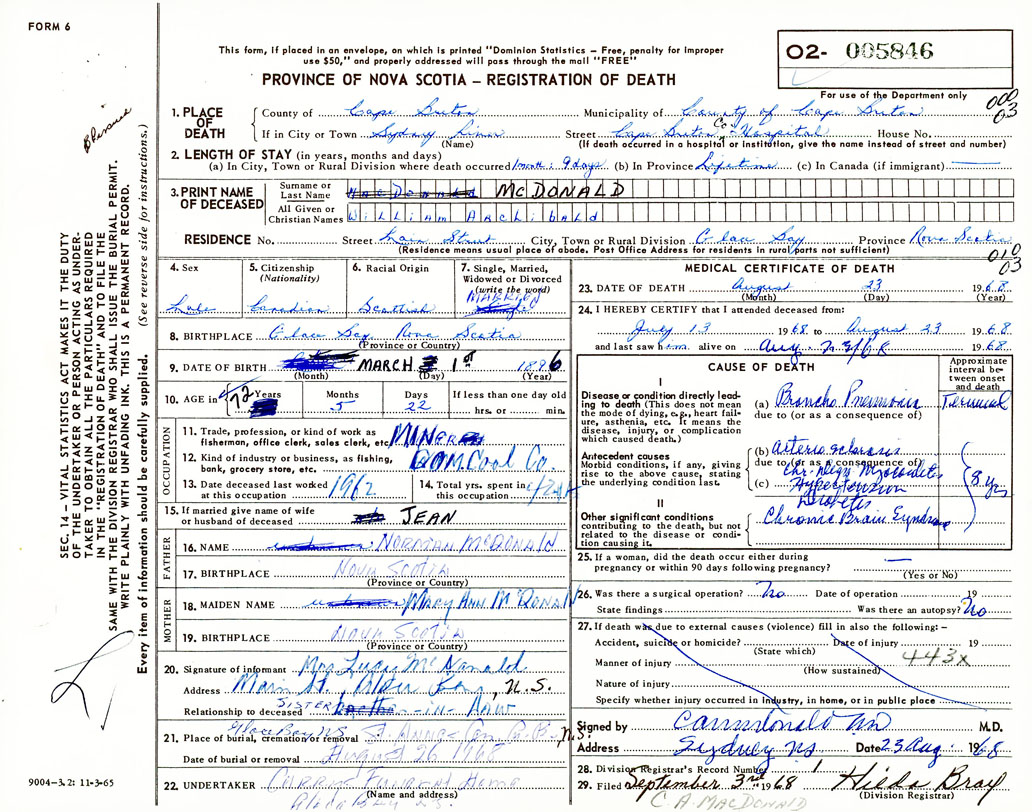 FORM 6
This form, if placed in an envelope, on which is printed "Dominion Statistics – Free, penalty for improper
use $50," and properly addressed will pass through the mail "FREE"
PROVINCE OF NOVA SCOTIA – REGISTRATION OF DEATH
O2- 005846
For use of the Department only
000
03
SEC. 14 – VITAL STATISTICS ACT MAKES IT THE DUTY
OF THE UNDERTAKER OR PERSON ACTING AS UNDER-
TAKER TO OBTAIN ALL THE PARTICULARS REQUIRED
IN THE REGISTRATION OF DEATH AND TO FILE THE
SAME WITH THE DIVISION REGISTRAR WHO SHALL ISSUE THE BURIAL PERMIT.
WRITE PLAINLY WITH UNFADING INK. THIS IS A PERMANENT RECORD.
Every item of information should be carefully supplied. (See reverse side for instructions.)
1. PLACE OF DEATH
County of Cape Breton Municipality of County of Cape Breton
If in City or Town Sydney River Street Cape Breton Co Hospital House No.
(Name) (If death occurred in a hospital or institution, give the name instead of street and number)
2. LENGTH OF STAY (in years, months and days)
(a) In City, Town or Rural Division where death occurred 1 month : 9 days (b) In Province Lifetime (c) In Canada (if immigrant)
3. PRINT NAME OF DECEASED
Surname or Last Name MacDonald McDONALD
All Given or Christian Names William Archibald
RESIDENCE No. Street Main Street City, Town or Rural Division Glace Bay Province Nova Scotia
(Residence means usual place of abode. Post Office Address for residents in rural parts not sufficient)
010
03
4. Sex Male
5. Citizenship (Nationality) Canadian
6. Racial Origin Scottish
7. Single, Married, Widowed or Divorced (write the word) MARRIED
8. BIRTHPLACE Glace Bay Nova Scotia
(Province or Country)
9. DATE OF BIRTH MARCH 1st 1896
(Month) (Day) (Year)
10. AGE in 72 Years Months 5 Days 22 If less than one day old hrs. or min.
OCCUPATION
11. Trade, profession, or kind of work as fisherman, office clerk, sales clerk, etc. MINER
12. Kind of industry or business, as fishing, bank, grocery store, etc. DOM Coal Co.
13. Date deceased last worked at this occupation 1962
14. Total yrs. spent in this occupation
15. If married give name of wife or husband of deceased JEAN
FATHER
16. NAME NORMAN McDONALD
17. BIRTHPLACE NOVA SCOTIA
(Province or Country)
MOTHER
18. MAIDEN NAME MARY ANN McDONALD
19. BIRTHPLACE NOVA SCOTIA
(Province or Country)
20. Signature of informant Mrs McDonald
Address Main St., Glace Bay, N.S.
Relationship to deceased SISTER -in- Law
21. Place of burial, cremation or removal Glace Bay NS St Anns
Date of burial or removal August 26 1968
22. UNDERTAKER Funeral Home
(Name and address)
Glace Bay NS.
9004–3.2: 11-3-65
MEDICAL CERTIFICATE OF DEATH
23. DATE OF DEATH August 23 1968
(Month) (Day) (Year)
24. I HEREBY CERTIFY that I attended deceased from:
July 13 1968 to August 23 1968
and last saw him alive on Aug. 1968
CAUSE OF DEATH
Approximate interval between onset and death
I
Disease or condition directly leading to death (This does not mean the mode of dying, e.g., heart failure, asthenia, etc. It means the disease, injury, or complication which caused death.)
(a) Broncho Pneumonia Terminal
due to (or as a consequence of)
Antecedent causes
Morbid conditions, if any, giving rise to the above cause, stating the underlying condition last.
(b) Arteriosclerosis
due to (or as a consequence of)
(c) Hypertension
8 yrs
II
Other significant conditions contributing to the death, but not related to the disease or condition causing it.
Diabetes
Chronic Brain Syndrome
25. If a woman, did the death occur either during pregnancy or within 90 days following pregnancy?
(Yes or No)
26. Was there a surgical operation? No Date of operation 19
State findings Was there an autopsy? No
27. If death was due to external causes (violence) fill in also the following:–
Accident, suicide or homicide? Date of injury 19
(State which) 443x
Manner of injury
(How sustained)
Nature of injury
Specify whether injury occurred in industry, in home, or in public place
Signed by M.D.
Address Sydney NS Date 23 Aug 1968
28. Division Registrar's Record Number
29. Filed September 3rd 1968 Hilda Bray
(Division Registrar)
C A MACDONALD